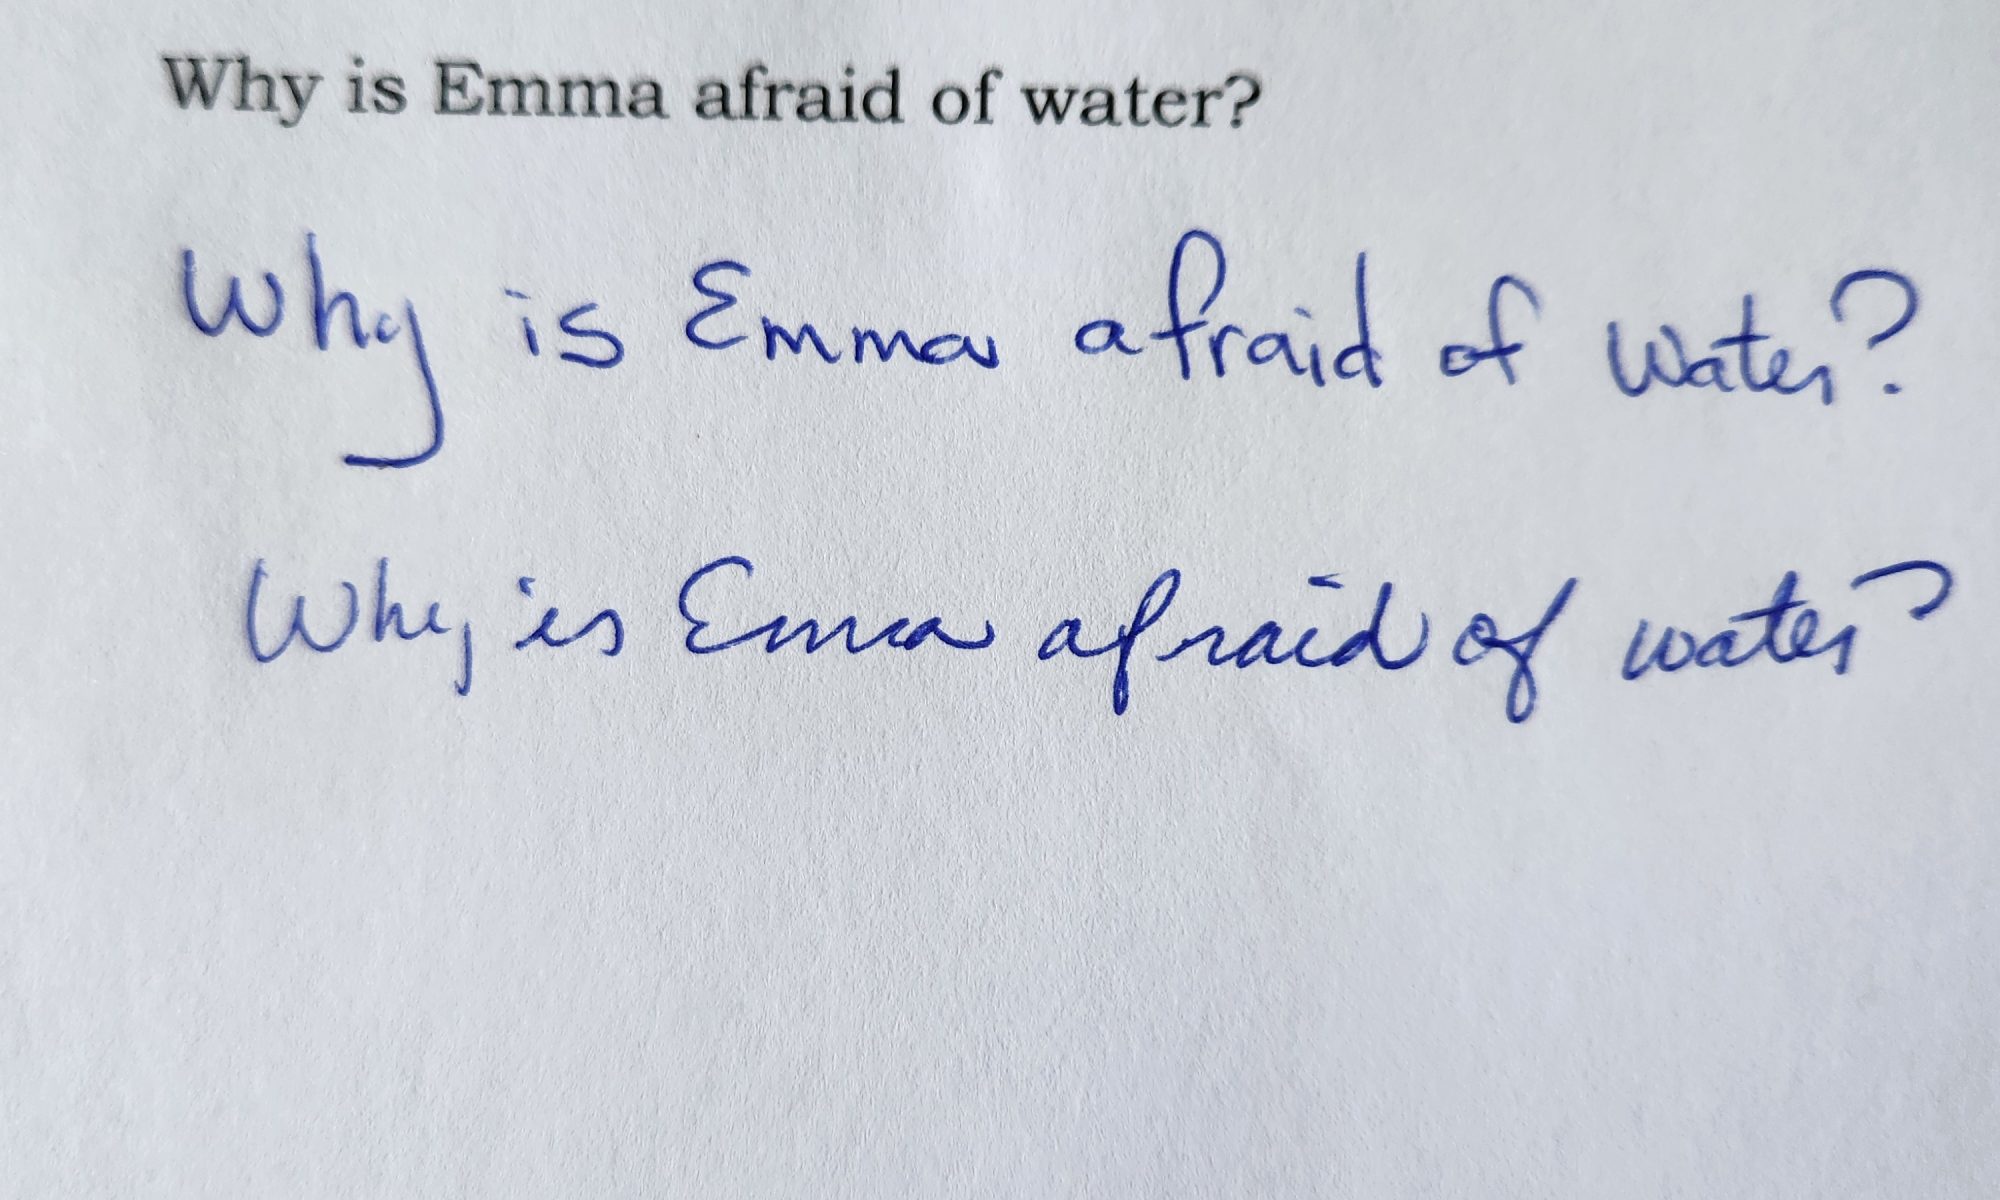 Why is Emma afraid of water?
Why is Emma afraid of water?
Why is Emma afraid of water?